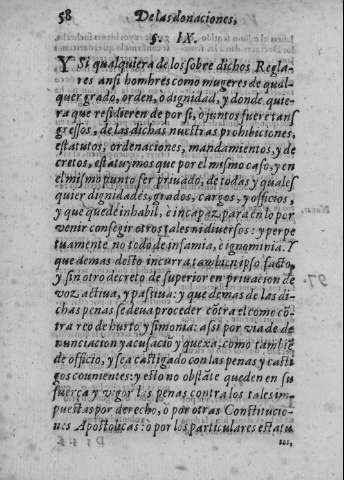 58 De las donaciones,
§. IX.
Y Si qualquiera de los sobre dichos Regla-
res ansi hombres como mugeres de qual
quer grado, orden, o dignidad, y donde quie-
ra que residieren de por si, o juntos fuere trans
gressos, de las dichas nuestras prohibiciones,
estatutos, ordenaciones, mandamientos, y de
cretos, estatuymos que por el mismo caso, y en
el mismo punto ser priuado, de todas y quales
quier dignidades, grados, cargos, y officios,
y que quede inhabil, e incapaz para en lo por
venir consegir otros tales ni diuersos: y perpe
tuamente no todo de infamia, e ignominia. Y
que demas desto incurra tambien ipso facto,
y sin otro decreto de superior en priuacion de
voz actiua, y passiua: y que demas de las di-
chas penas se deua proceder cōtra el como cō
tra reo de hurto y simonia: assi por via de de
nunciacion y acusaciō y quexa, como tambiē
de officio, y sea castigado con las penas y casti
gos conuientes: y esto no obstāte queden en su
fuerça y vigor las penas contra los tales im-
puestas por derecho, o por otras Constitucio-
nes Apostolicas: o por los particulares estatu
tos,